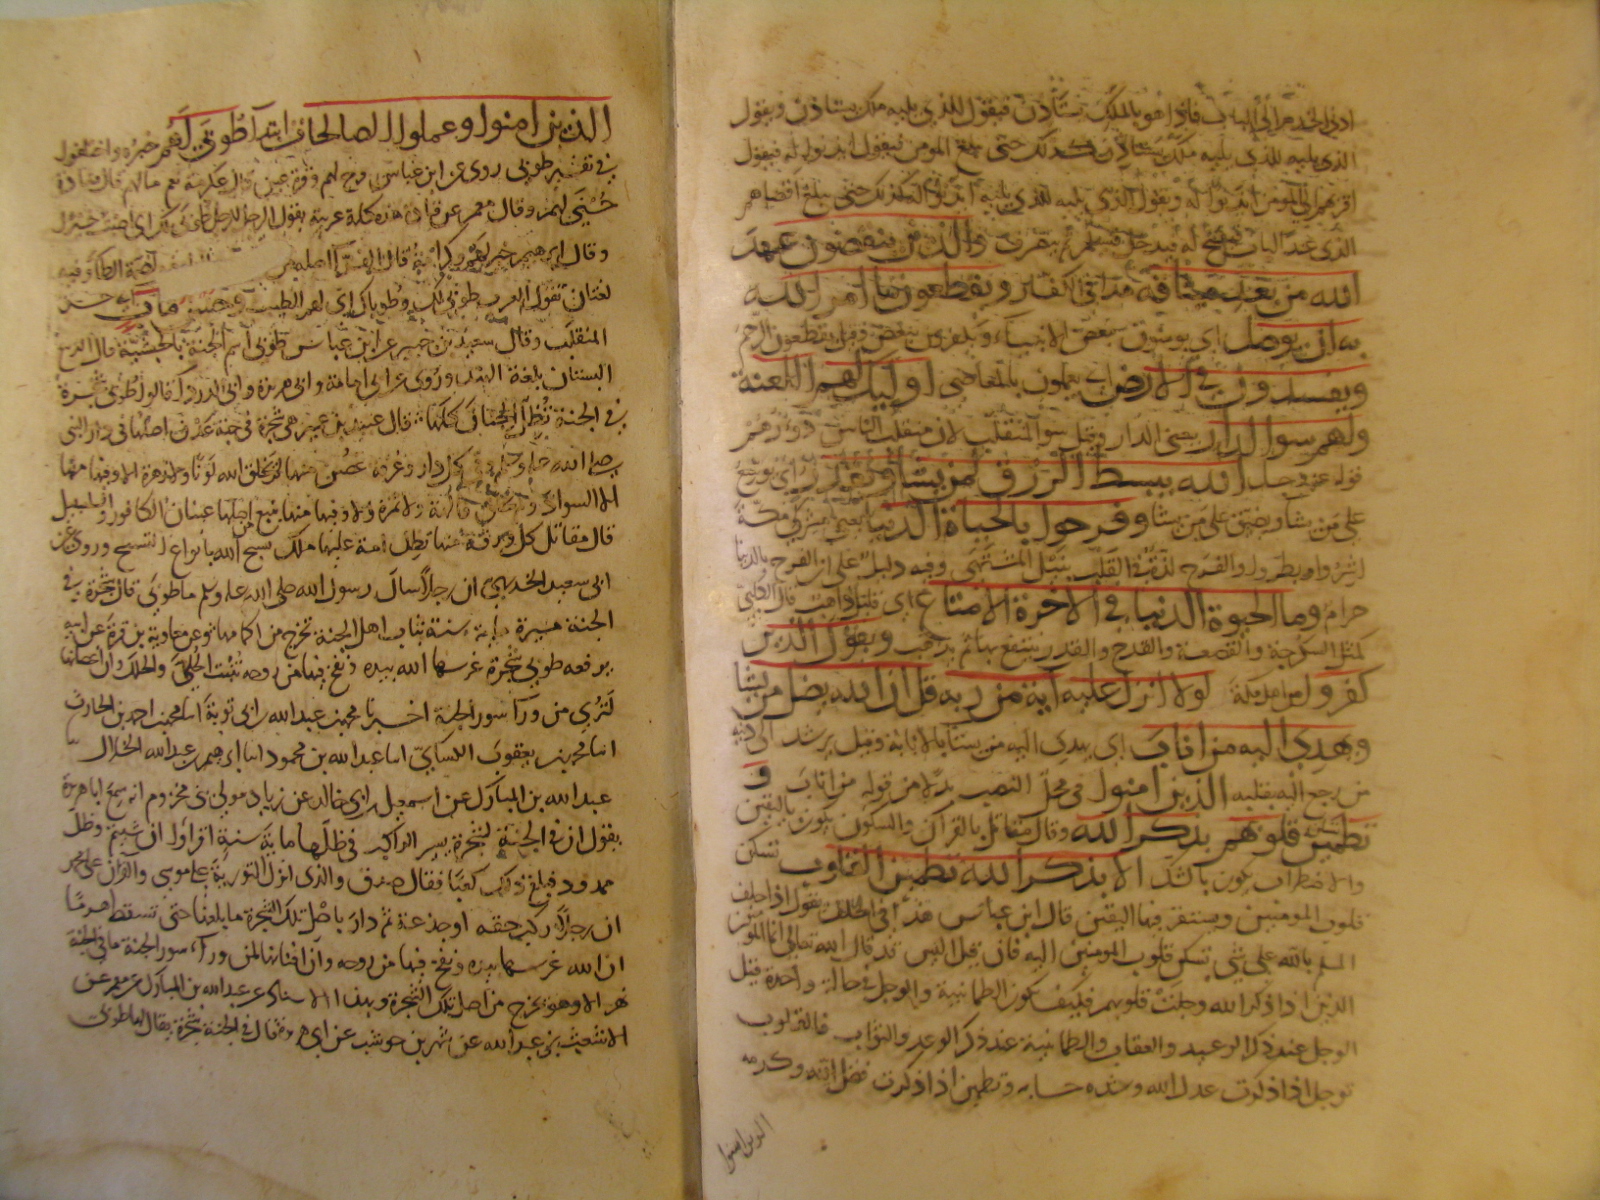 ادنى الخدم الى الباب فاذا هو بالملك يستأذن فيقول للذي يليه ملك يستاذن ويقول
الذي يليه للذي يليه ملك يستاذن كذلك حتى يبلغ المومن فيقول ايذنوا له فيقول
اقربهم الى المومن ايذنوا له ويقول الذي يليه للذي يليه ايذنوا له كذلك حتى يبلغ اقصاهم
الذي عند الباب فيفتح له فيدخل فيسلم ثم ينصرف والذين ينقضون عهد
الله من بعد ميثاقه هذا في الكفار ويقطعون ما امر الله
به ان يوصل اي يومنون ببعض الانبياء ويكفرون ببعض وقيل يقطعون الرحم
ويفسدون في الارض اي يعملون بالمعاصي اوليك لهم اللعنة
ولهم سوا الدار يعني النار وقيل سوا المنقلب لان منقلب الناس دورهم
قوله عز وجل الله يبسط الرزق لمن يشا ويقدر اي يوسع
على من يشا ويضيق على من يشا وفرحوا بالحياة الدنيا يعني مشركي مكة
اشروا وبطروا والفرح لذة في القلب بنيل المشتهى وفيه دليل على ان الفرح بالدنيا
حرام وما الحيوة الدنيا في الاخرة الا متاع اي قليل ذاهب قال الكلبي
كمثل السكرجة والقصعة والقدح والقدر ينتفع بها ثم يذهب ويقول الذين
كفروا من اهل مكة لولا انزل عليه آية من ربه قل ان الله يضل من يشا
ويهدي اليه من اناب اي يهدي اليه من يشا بالانابة وقيل يرشد الى دينه
من رجع اليه بقلبه الذين امنوا في محل النصب بدلا من قوله من اناب و
تطمين قلوبهم بذكر الله وقال مقاتل بالقرآن والسكون يكون باليقين
والاضطراب يكون بالشك الا بذكر الله تطمين القلوب تسكن
قلوب المومنين ويستقر فيها اليقين قال ابن عباس هذا في الحلف يقول اذا حلف
المسلم بالله على شي تسكن قلوب المومنين اليه فان قيل اليس قد قال الله تعالى انما المومنون
الذين اذا ذكر الله وجلت قلوبهم فكيف تكون الطمانينة والوجل في حالة واحدة قيل
الوجل عند ذكر الوعيد والعقاب والطمانينة عند ذكر الوعد والثواب فالقلوب
توجل اذا ذكرت عدل الله وشدة حسابه وتطمين اذا ذكرت فضل الله وكرمه
الذين امنوا
الذين امنوا وعملوا الصالحات ابتدا طوبى لهم خبره واختلفوا
في تفسير طوبى روي عن ابن عباس فرح لهم وقرة عين وقال عكرمة نعم مالهم قال قتادة
حسنى لهم وقال معمر عن قتادة هذه كلمة عربية يقول الرجل للرجل طوبى لك اي اصبت خيرا
وقال ابرهيم خير لهم وكرامة قال الفرا اصله من
لغتان تقول العرب طوبى لك وطوباك اي لهم الطيب وحسن ماب اي حسن
المنقلب وقال سعيد بن جبير عن ابن عباس طوبى اسم الجنة بالحبشية قال الربيع
البستان بلغة الهند وروي عن ابي امامة وابي هريرة وابي الدردا قالوا طوبى شجرة
في الجنة تظل الجنان كلها قال عبيد بن عمير هي شجرة في جنة عدن اصلها في دار النبي
صلى الله عليه وسلم وفي كل دار وغرفة غصن منها لم يخلق الله لونا ولا زهرة الا وفيها منها
الا السواد ولم يخلق فاكهة ولا ثمرة الا وفيها منها ينبع من اصلها عينان الكافور والسلسبيل
قال مقاتل كل ورقة منها تظل امة عليها ملك يسبح الله بانواع التسبيح وروي عن
ابي سعيد الخدري ان رجلا سال رسول الله صلى الله عليه وسلم ما طوبى قال شجرة في
الجنة مسيرة ماية سنة ثياب اهل الجنة تخرج من اكمامها وعن معاوية بن قرة عن ابيه
يرفعه طوبى شجرة غرسها الله بيده ونفخ فيها من روحه تنبت الحلي والحلل وان اغصانها
لترى من ورآ سور الجنة اخبرنا محمد بن عبد الله بن ابي توبة انا محمد بن احمد بن الحارث
انبا محمد بن يعقوب الكسائي انبا عبد الله بن محمود انبا ابرهيم بن عبد الله الخلال
عبد الله بن المبارك عن اسمعيل بن ابي خالد عن زياد مولى بني مخزوم انه سمع ابا هريرة
يقول ان في الجنة لشجرة يسير الراكب في ظلها ماية سنة اقراوا ان شيتم وظل
ممدود فبلغ ذلك كعبا فقال صدق والذي انزل التورية على موسى والقران على محمد
ان رجلا ركب حقه او جذعة ثم دار باصل تلك الشجرة ما بلغها حتى تسقط هرما
ان الله غرسها بيده ونفخ فيها من روحه وان افنانها لمن ورآء سور الجنة ما في الجنة
نهر الا وهو يخرج من اصل تلك الشجرة وبهذا الاسناد عن عبد الله بن المبارك عن معمر عن
الاشعث بن عبد الله عن شهر بن حوشب عن ابي هريرة قال في الجنة شجرة يقال لها طوبى